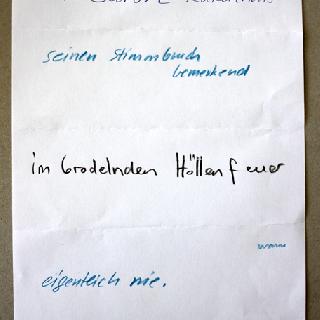 seinen Stimmbruch
bemerkend
im brodelnden Höllenfeuer
wann
eigentlich nie.